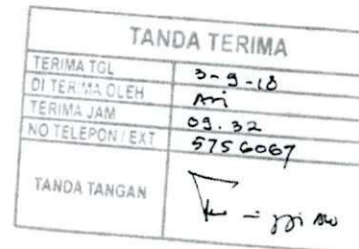 TANDA TERIMA
TERIMA TGL 3-9-18
DI TERIMA OLEH Ari
TERIMA JAM 09.32
NO TELEPON / EXT 5756067
TANDA TANGAN